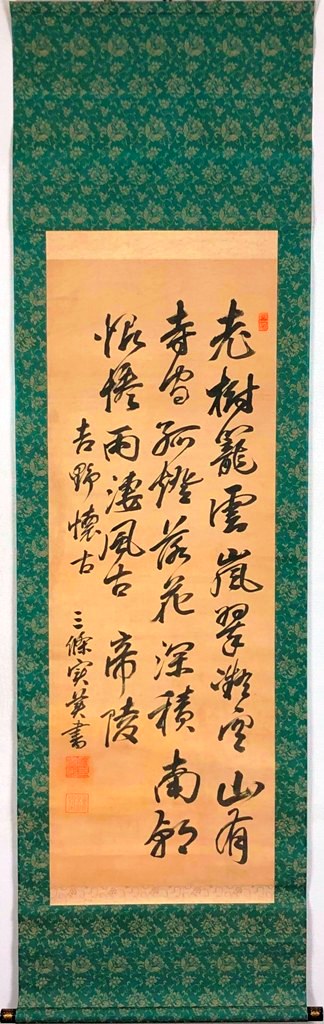 老樹籠雲嵐翠凝空山有
寺守孤燈落花深積南朝
恨慘雨凄風古帝陵
吉野懐古 三條實美書